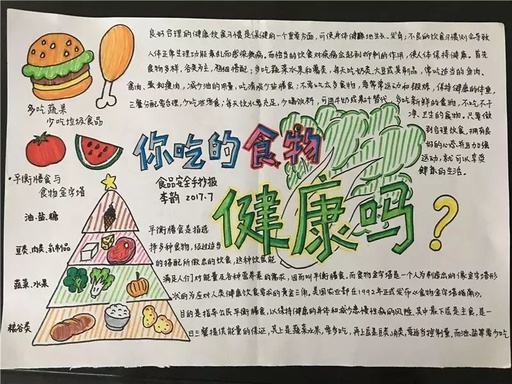 良好合理的健康饮食习惯是保健的一个重要方面,可使身体健康地生长、发育;不良的饮食习惯则会导致
人体正常生理功能紊乱而感染疾病。而恰当的饮食对疾病会起到治疗的作用,使人体保持健康。首先
食物多样,谷类为主,粗细搭配;多吃蔬菜水果和薯类,每天吃奶类、大豆或其制品,常吃适当的鱼肉、
禽肉、蛋和瘦肉,减少油的用量,吃清淡少盐膳食;不要吃太多食物,要常常运动和锻炼,保持健康的体重。
三餐分配要合理,少吃些零食,每天饮水要充足,少喝饮料,可适当奶或果汁替代,多吃新鲜的食物,不吃不干
净、卫生的食物,只要做
到合理饮食,拥有良
好的心态,并且加强
运动,就可以享受
健康的生活。
多吃蔬果
少吃垃圾食品
你吃的食物
健康吗?
食品安全手抄报
李韵 2017.7
平衡膳食与
食物金字塔
油、盐、糖
豆类、肉类、乳制品
蔬菜、水果
粮谷类
平衡膳食是指选
择多种食物,经过适当
的搭配所做出的饮食,这种饮食能
满足人们对能量及各种营养素的需求,因而叫平衡膳食,而食物金字塔是一个人为制造出的像金字塔形
状的为应对人类健康饮食需求的黄金三角,美国农业部在1992年正式发布《食物金字塔指南》,
目的是指导公民平衡膳食,以保持健康的身体和减少患慢性病的风险,其中最下层是主食,是一
日三餐提供能量的保证,其上是蔬菜水果,常多吃,再上层是豆类、肉类,要适当控制量,而油、盐要常少吃